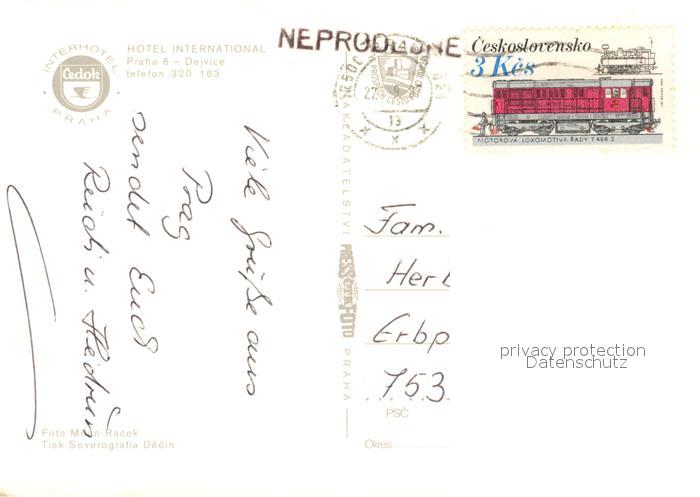 INTERHOTEL
Čedok
PRAHA
HOTEL INTERNATIONAL
Praha 6 - Dejvice
telefon 320 163
NEPRODEJNÉ
Československo
3 Kčs
MOTOROVÁ LOKOMOTIVA ŘADY T 466.2
27.9
13
Viele Grüße aus
Prag
sendet Euch
Reidi u. Hedrun
NAKLADATELSTVÍ
PRESSFOTO
PRAHA
Fam.
Her
Erbp
753
PSČ
Okres:
privacy protection
Datenschutz
Foto Milan Racek
Tisk Severografia Děčín